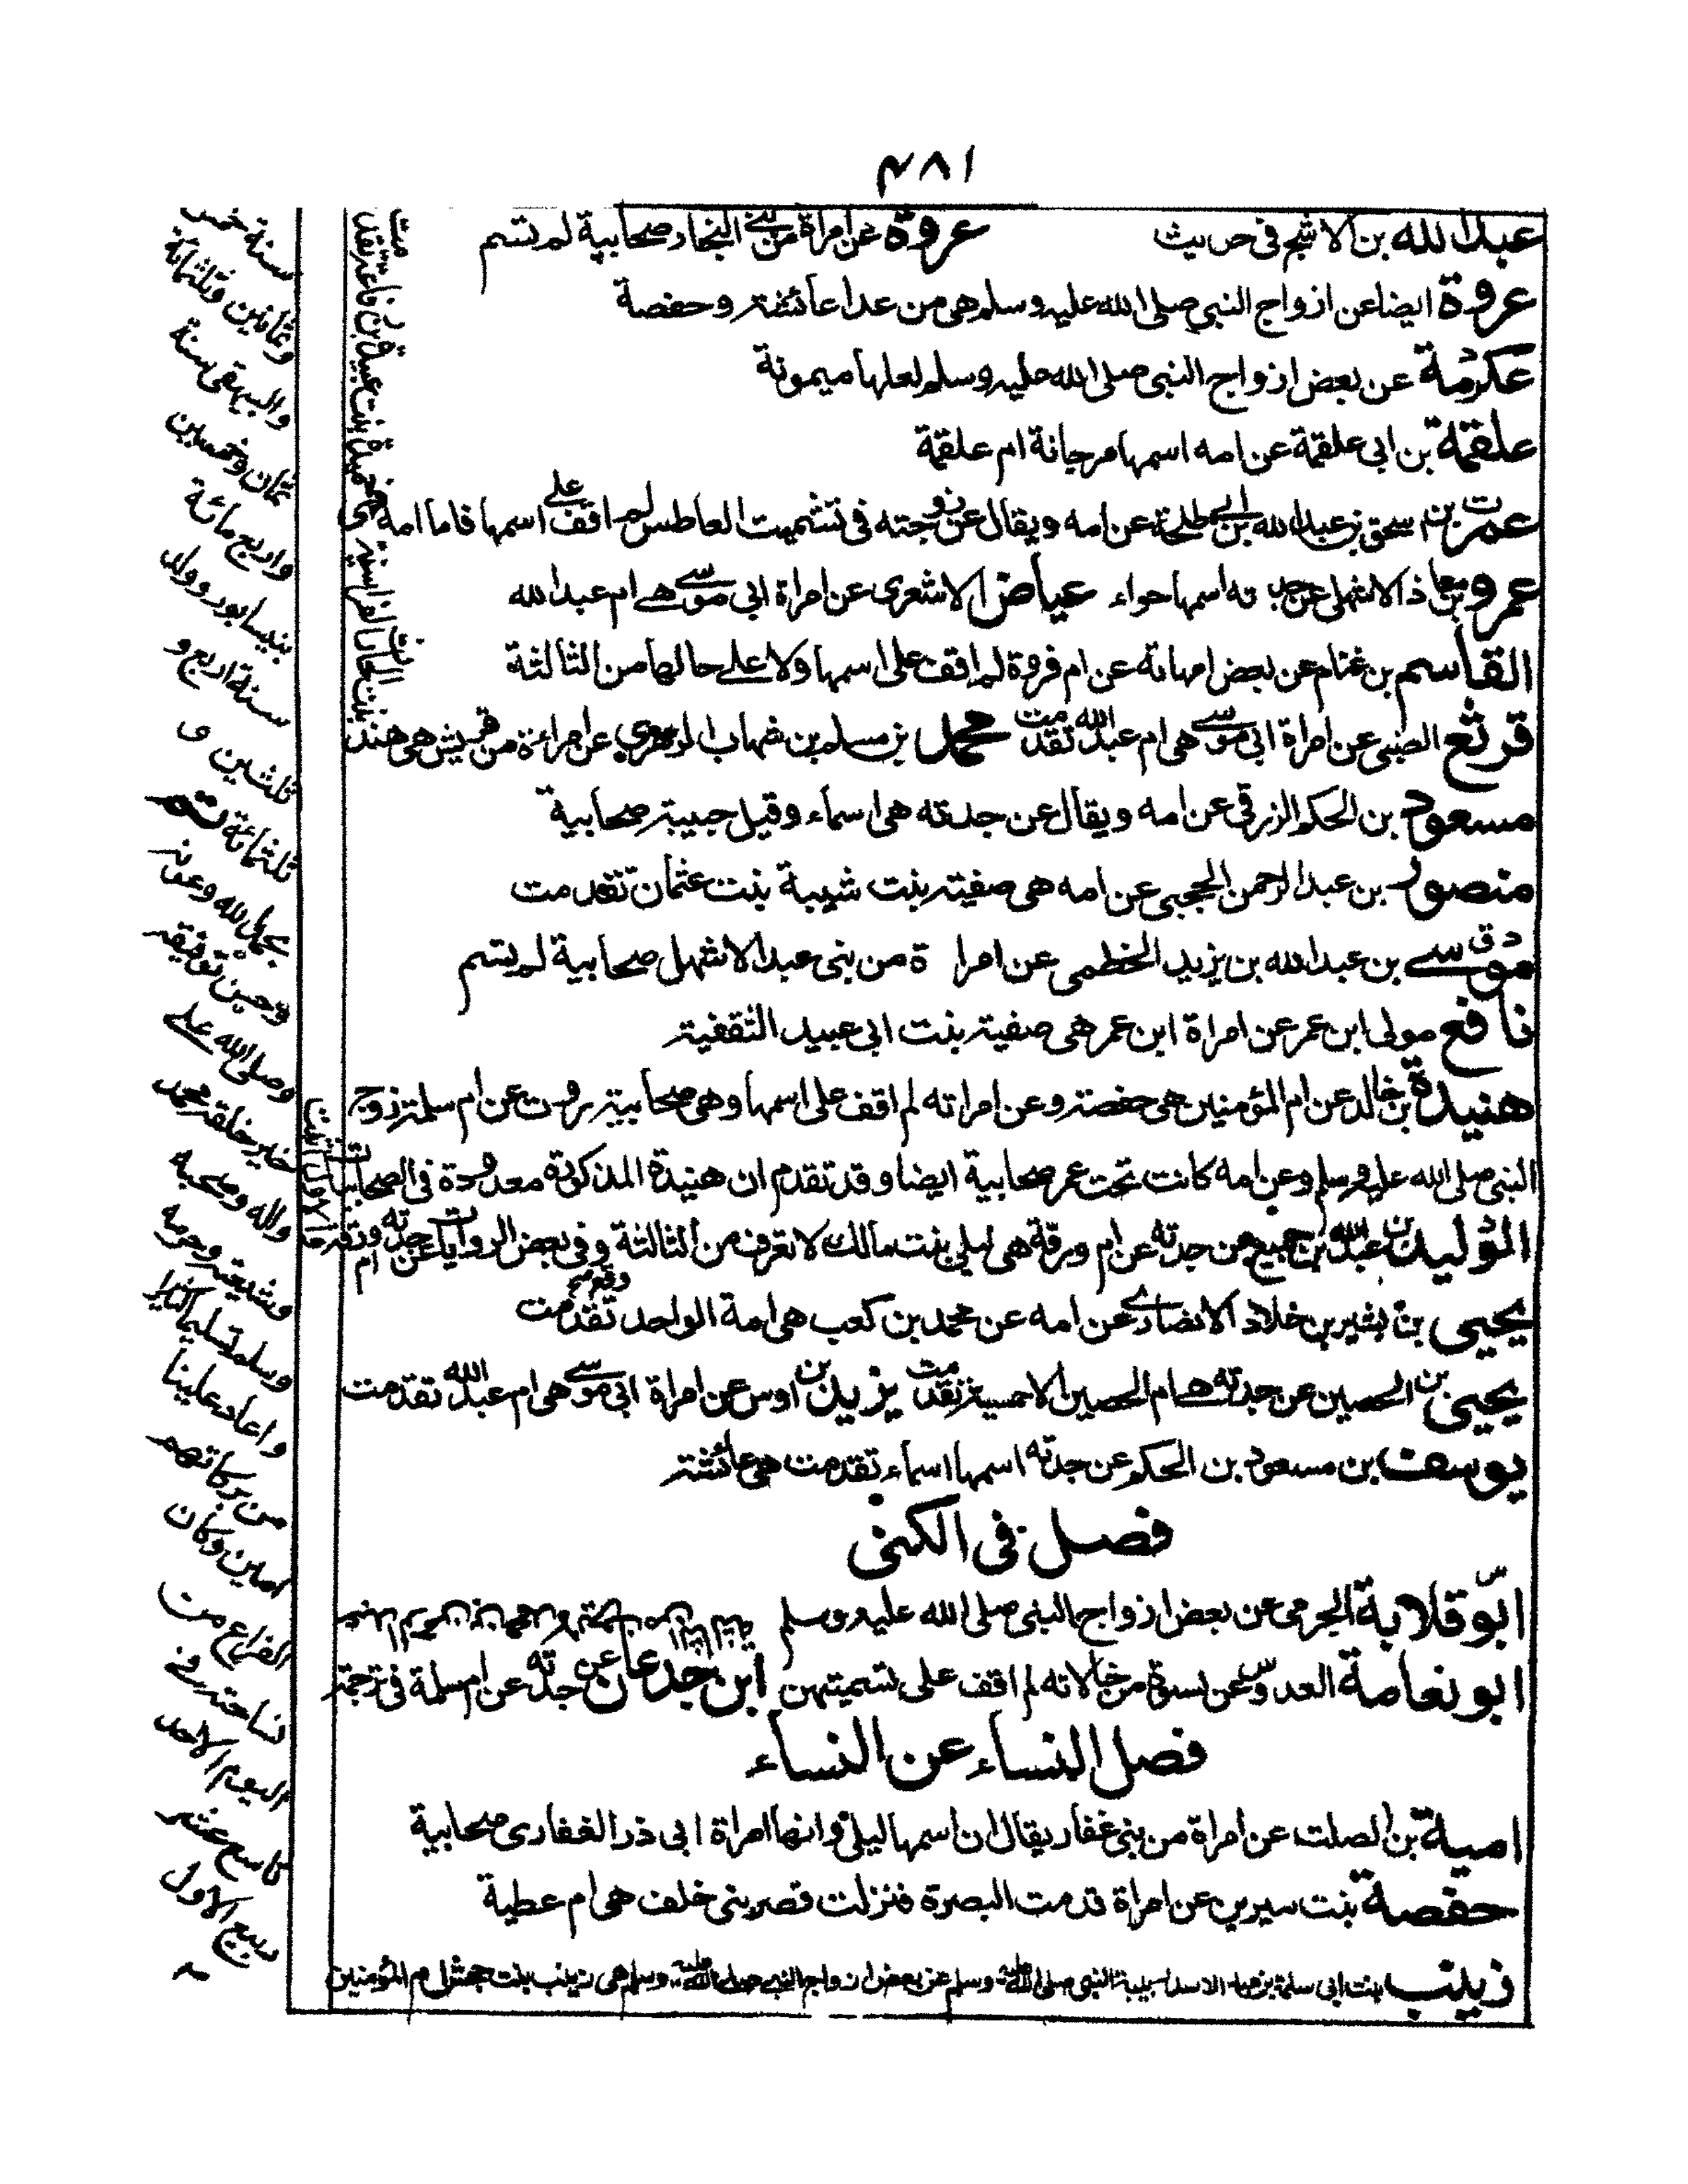 ٤٨١
عبد الله بن الاشج فى حديث عروة عن امراة من بنى النجار صحابية لم تسم
عروة ايضا عن ازواج النبي صلى الله عليه وسلم هى من عدا عائشة و حفصة
عكرمة عن بعض ازواج النبى صلى الله عليه وسلم لعلها ميمونة
علقمة بن ابى علقمة عن امه اسمها مرجانة ام علقمة
عمر بن اسحق بن عبد الله بن ابى طلحة عن امه ويقال عن زوجته فى تشميت العاطس لم اقف على اسمها فاما امه فهى حميدة بنت عبيد بن رفاعة تقدمت
عمرو بن معاذ الاشهلى عن جدته اسمها حواء عياض الاشعرى عن امراة ابى موسى هے ام عبد الله
القاسم بن غنام عن بعض امهاته عن ام فروة لم اقف على اسمها ولا على حالها من الثالثة
قرثع الضبى عن امراة ابى موسى هى ام عبد الله تقدمت محمد بن مسلم بن شهاب الزهرى عن امراة من قريش هى هند بنت الحارث الفراسية
مسعود بن الحكم الزرقى عن امه ويقال عن جدته هى اسماء وقيل حبيبة صحابية
منصور بن عبد الرحمن الحجبى عن امه هى صفية بنت شيبة بنت عثمان تقدمت
موسى بن عبد الله بن يزيد الخطمى عن امراة من بنى عبد الاشهل صحابية لم تسم
نافع مولى ابن عمر عن امراة ابن عمر هى صفية بنت ابى عبيد الثقفية
هنيدة بن خالد عن ام المؤمنين هى حفصة وعن امراته لم اقف على اسمها وهى صحابية روت عن ام سلمة زوج
النبى صلى الله عليه وسلم وعن امه كانت تحت عمر صحابية ايضا وقد تقدم ان هنيدة المذكورة معدودة فى الصحابيات
الوليد بن عبد الله بن جميع عن جدته عن ام ورقة هى ليلى بنت مالك لا تعرف من الثالثة وفى بعض الروايات عن جدته
يحيى بن بشير بن خلاد الانصارى عن امه عن محمد بن كعب هى امة الواحد تقدمت
يحيى بن الحصين عن جدته هے ام الحصين الاحمسية تقدمت يزيد بن اوس عن امراة ابى موسى هى ام عبد الله تقدمت
يوسف بن مسعود بن الحكم عن جدته اسمها اسماء تقدمت هى عائشة
فصل فى الكنى
ابو قلابة الجرمى عن بعض ازواج النبى صلى الله عليه وسلم
ابو نعامة العدوى عن نسوة من خالاته لم اقف على تسميتهن ابن جدعان عن جدته عن ام سلمة فى ترجمة
فصل النساء عن النساء
امية بن الصلت عن امراة من بنى غفار يقال ان اسمها ليلى وانها امراة ابى ذر الغفارى صحابية
حفصة بنت سيرين عن امراة قدمت البصرة فنزلت قصر بنى خلف هى ام عطية
زينب بنت ابى سلمة بن عبد الاسد ربيبة النبى صلى الله عليه وسلم عن بعض ازواج النبى صلى الله عليه وسلم هى زينب بنت جحش ام المؤمنين
سنة خمس
وثمانين وثلثمائة
والبيهقى سنة
ثمان وخمسين
واربع مائة
بنيسابور وولد
سنة اربع و
ثلثين و
ثلثمائة تم
بحمد الله وعونه
وحسن توفيقه
وصلى الله على
خير خلقه محمد
واله وصحبه
وشيعته وحزبه
وسلم تسليما كثيرا
واعاد علينا
من بركاتهم
امين وكان
الفراغ من
نساخته فى
اليوم الاحد
تاسع عشر
ربيع الاول